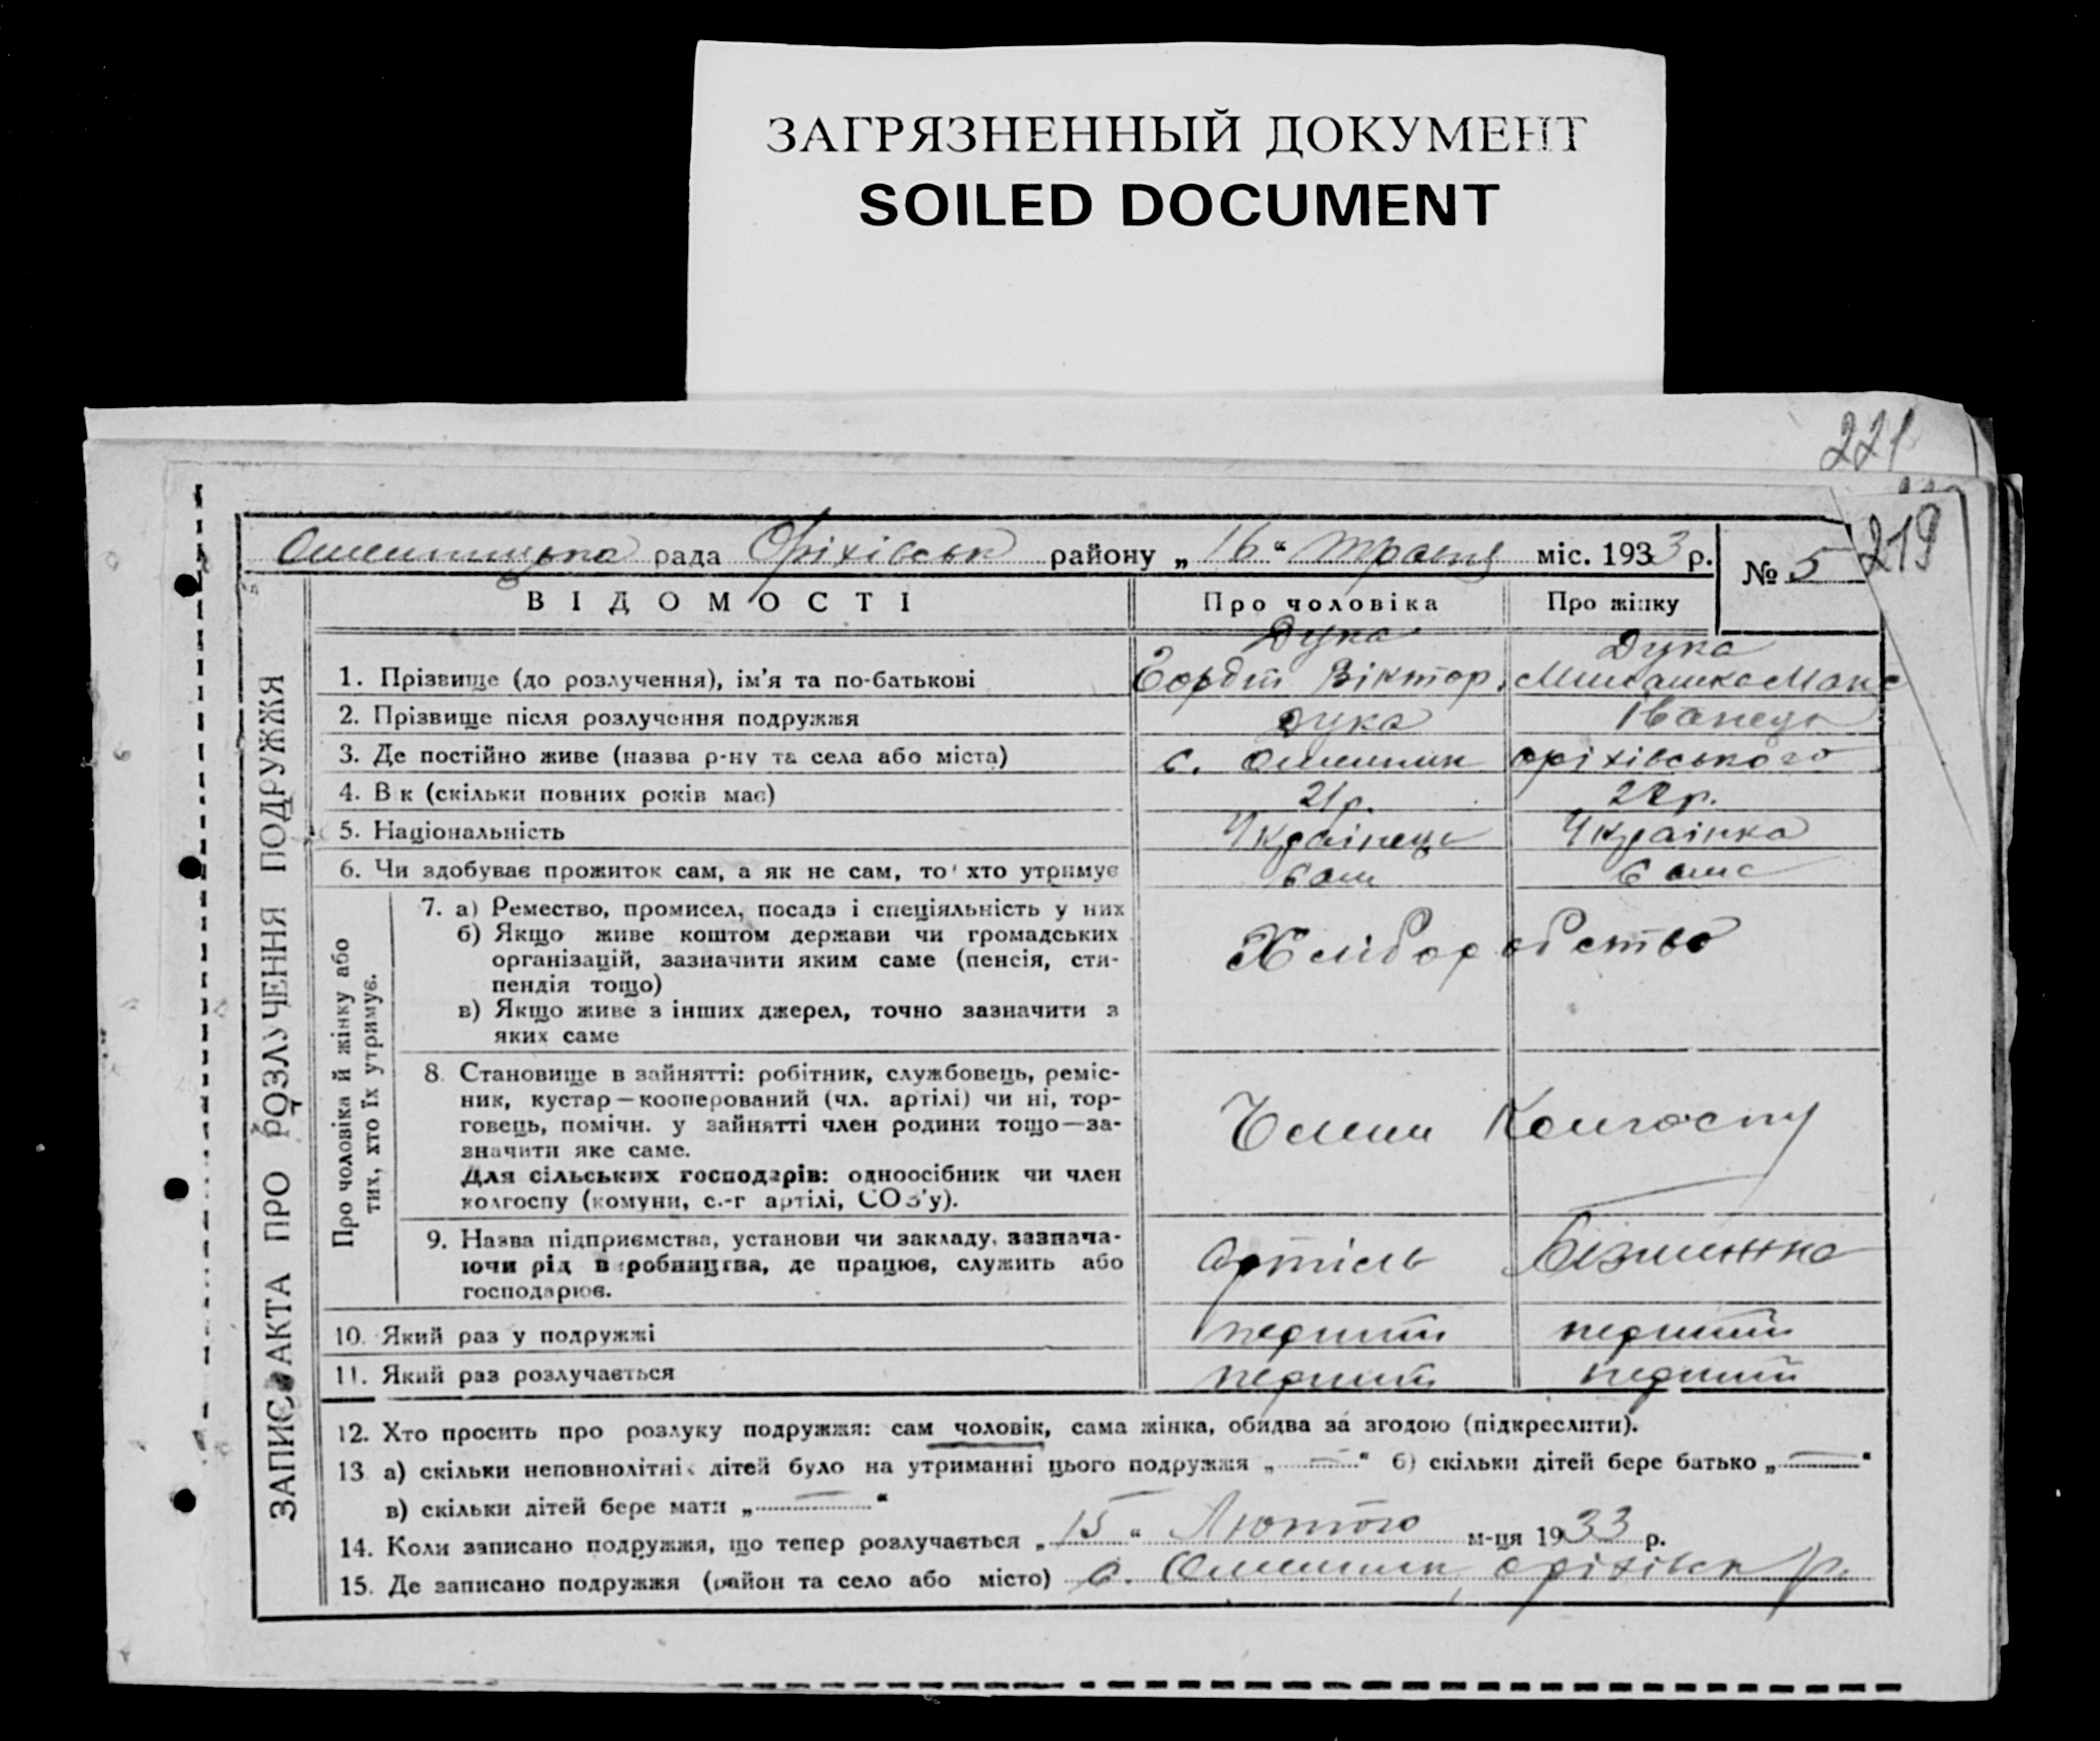 ЗАГРЯЗНЕННЫЙ ДОКУМЕНТ
SOILED DOCUMENT
221
219
рада Оріхівськ району „ 16 “ травня міс. 1933 р.
№ 5
ЗАПИС АКТА ПРО РОЗЛУЧЕННЯ ПОДРУЖЖЯ
ВІДОМОСТІ Про чоловіка Про жінку
Дука Дука
1. Прізвище (до розлучення), ім'я та по-батькові Віктор.
2. Прізвище після розлучення подружжя Дука Іванець
3. Де постійно живе (назва р-ну та села або міста) с. Омельник оріхівського
4. В к (скільки повних років має) 21 р. 22 р.
5. Національність Українець Українка
6. Чи здобуває прожиток сам, а як не сам, то хто утримує сам сама
Про чоловіка й жінку або
тих, хто їх утримує.
7. а) Ремество, промисел, посада і спеціяльність у них
б) Якщо живе коштом держави чи громадських
організацій, зазначити яким саме (пенсія, сти-
пендія тощо)
в) Якщо живе з інших джерел, точно зазначити з
яких саме
Хліборобство
8. Становище в зайнятті: робітник, службовець, реміс-
ник, кустар—кооперований (чл. артілі) чи ні, тор-
говець, помічн. у зайнятті член родини тощо—за-
значити яке саме.
Для сільських господарів: одноосібник чи член
колгоспу (комуни, с.-г артілі, СОЗ'у).
Члени Колгоспу
9. Назва підприємства, установи чи закладу, зазнача-
ючи рід виробництва, де працює, служить або
господарює.
Артіль
10. Який раз у подружжі перший перший
11. Який раз розлучається перший перший
12. Хто просить про розлуку подружжя: сам чоловік, сама жінка, обидва за згодою (підкреслити).
13 а) скільки неповнолітніх дітей було на утриманні цього подружжя „ — “ б) скільки дітей бере батько „ — “
в) скільки дітей бере мати „ — “
14. Коли записано подружжя, що тепер розлучається „ 15 “ Лютого м-ця 1933 р.
15. Де записано подружжя (район та село або місто) с. Омельник, оріхівськ р.